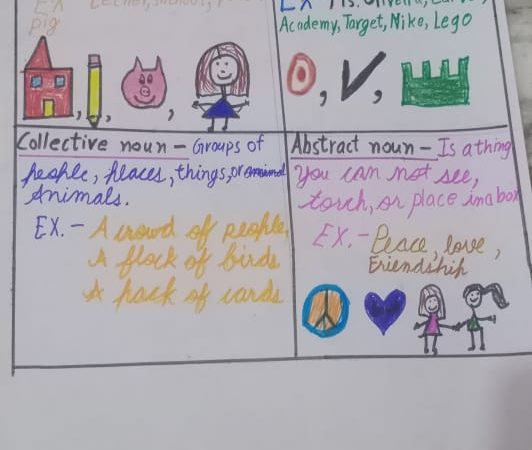 EX
pig
EX
Academy, Target, Nike, Lego
Collective noun - Groups of
people, places, things, or animal
Animals.
EX. - A crowd of people,
A flock of birds
A pack of cards
Abstract noun - Is a thing
You can not see,
torch, or place in a box
EX. - Peace, love,
Eriendship